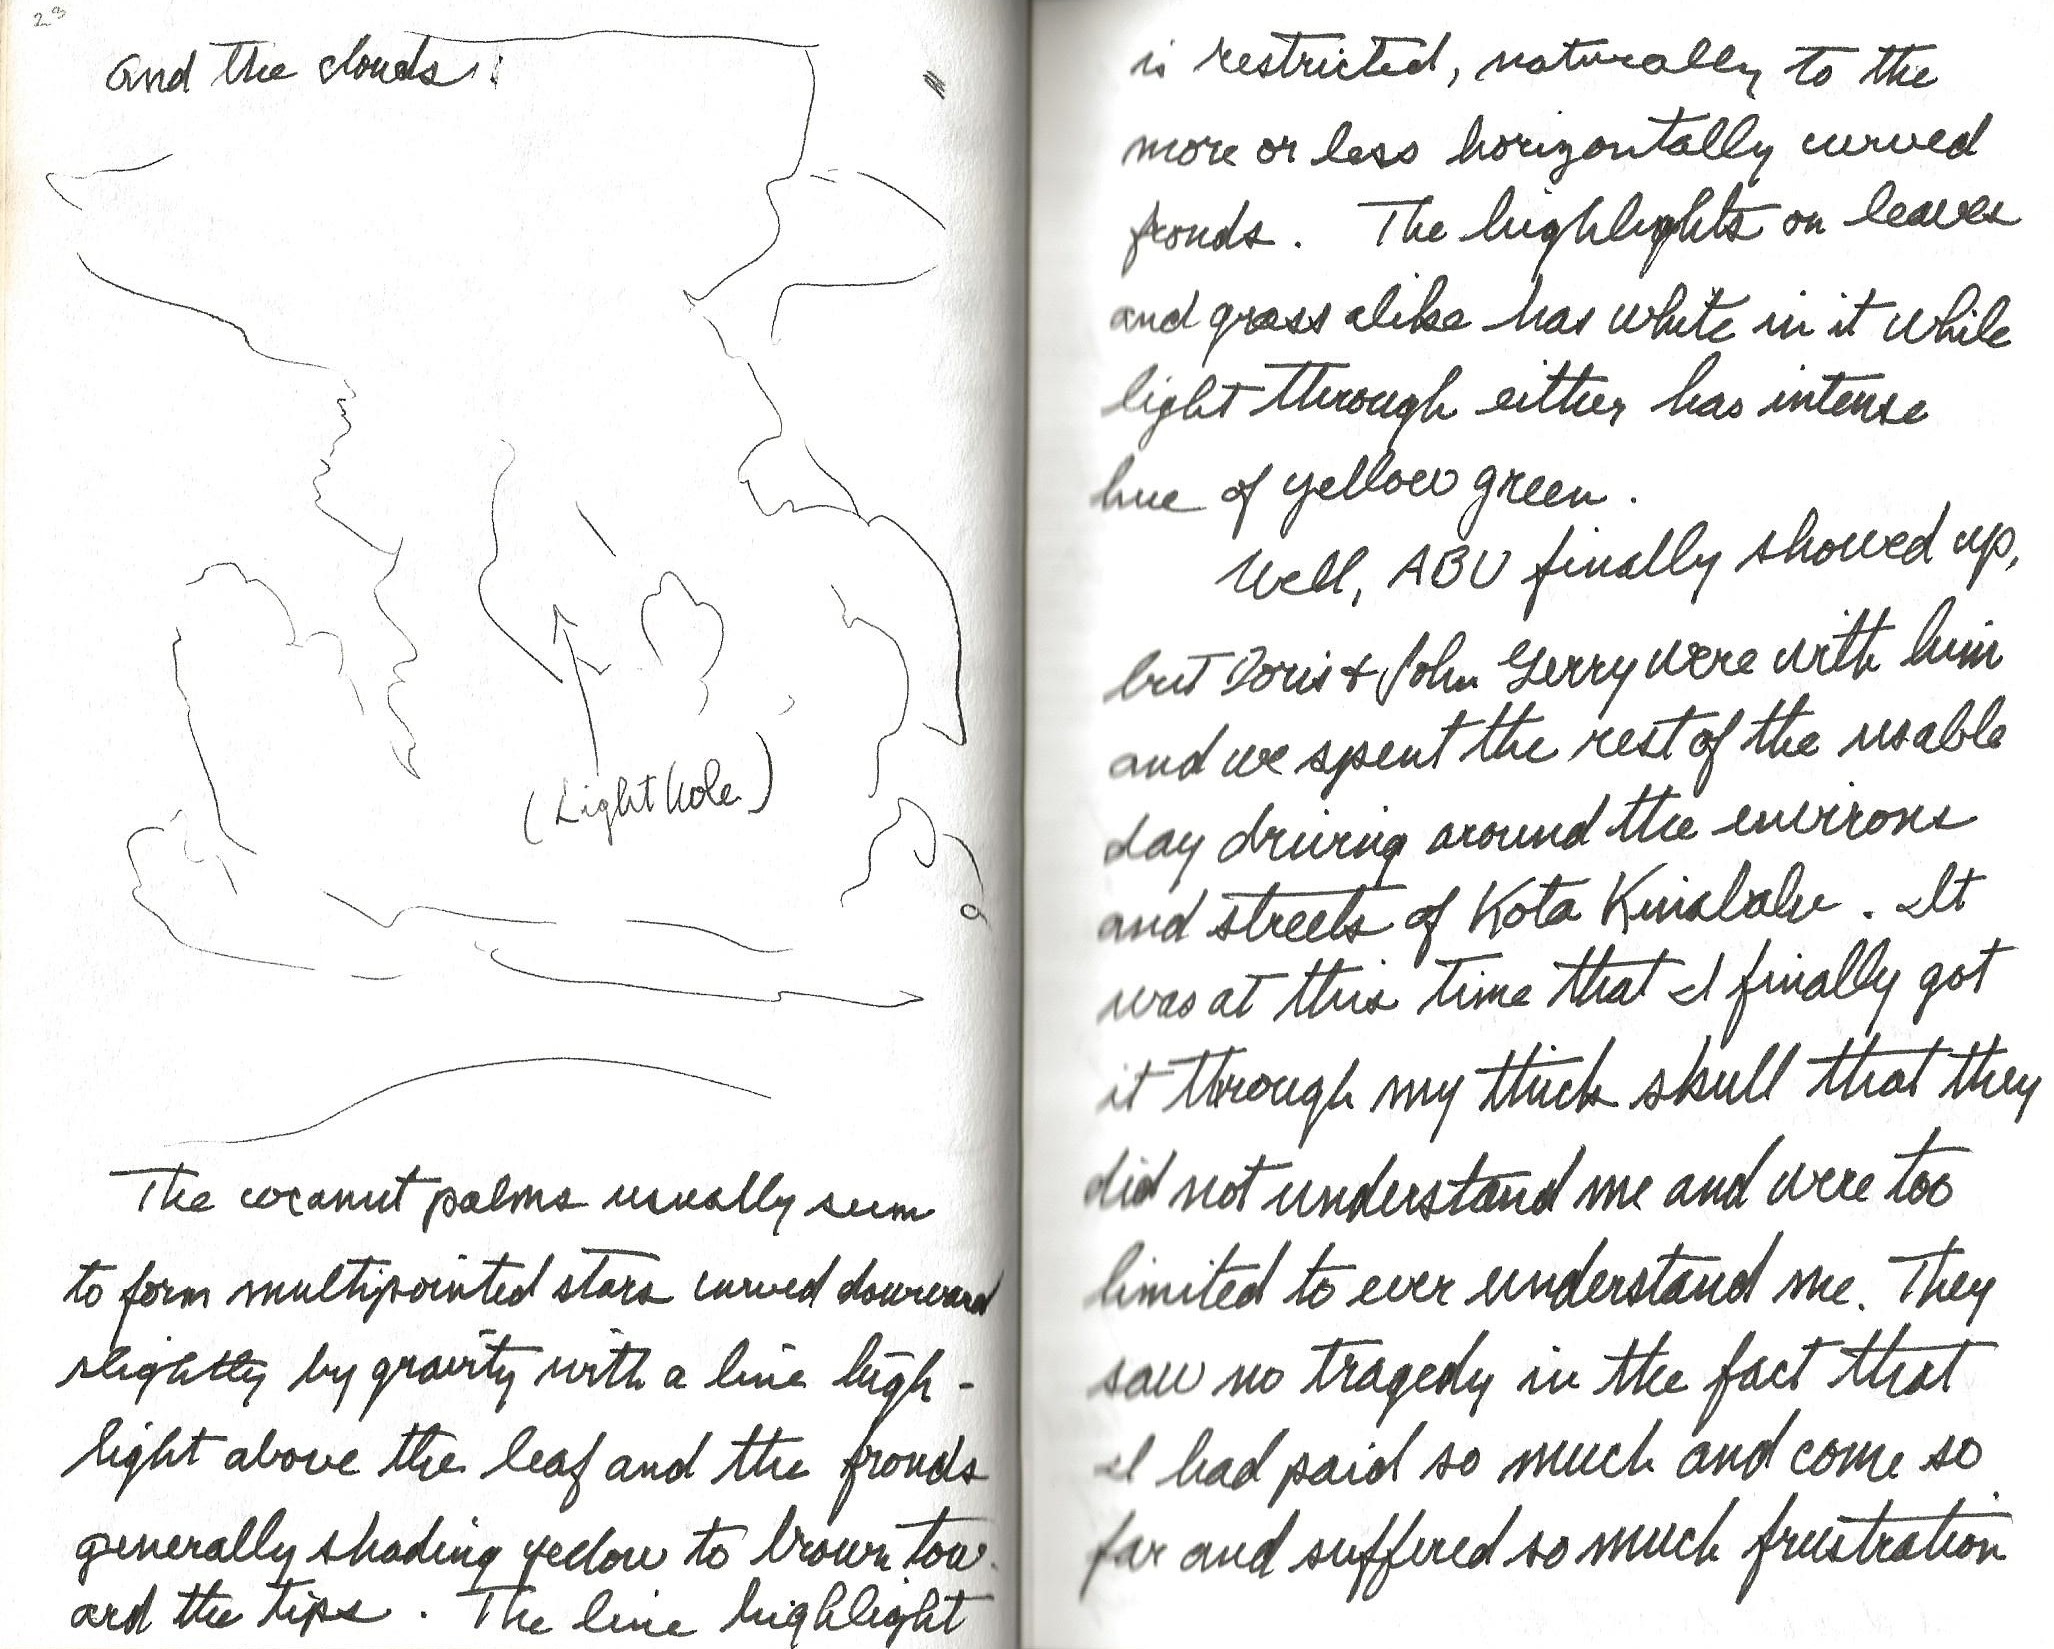 23
and the clouds:
(Light hole)
The coconut palms usually seem
to form multipointed stars curved downward
slightly by gravity with a line high-
light above the leaf and the fronds
generally shading yellow to brown tow-
ard the tips. The line highlight
is restricted, naturally to the
more or less horizontally curved
fronds. The highlights on leaves
and grass alike has white in it while
light through either has intense
hue of yellow green.
Well, ABU finally showed up,
but Doris & John Gerry were with him
and we spent the rest of the usable
day driving around the environs
and streets of Kota Kinabalu. It
was at this time that I finally got
it through my thick skull that they
did not understand me and were too
limited to ever understand me. They
saw no tragedy in the fact that
I had paid so much and come so
far and suffered so much frustration